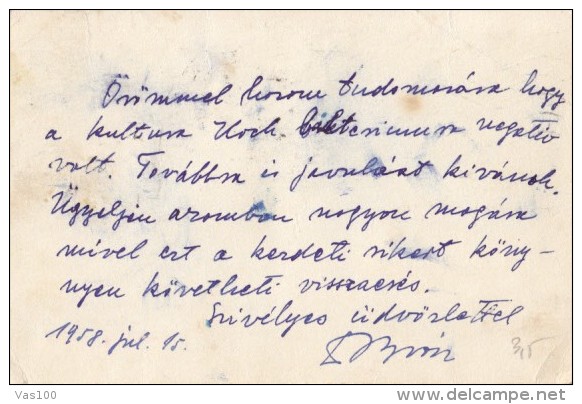 Örömmel hozom tudomására hogy
a kultura Koch bakteriumra negativ
volt. Továbbra is javulást kivánok.
Ügyeljen azomban nagyon magára
mivel ezt a kezdeti sikert köny-
nyen követheti visszaesés.
Szivélyes üdvözlettel
1958. jul. 15.
Vas100
delcampe.net